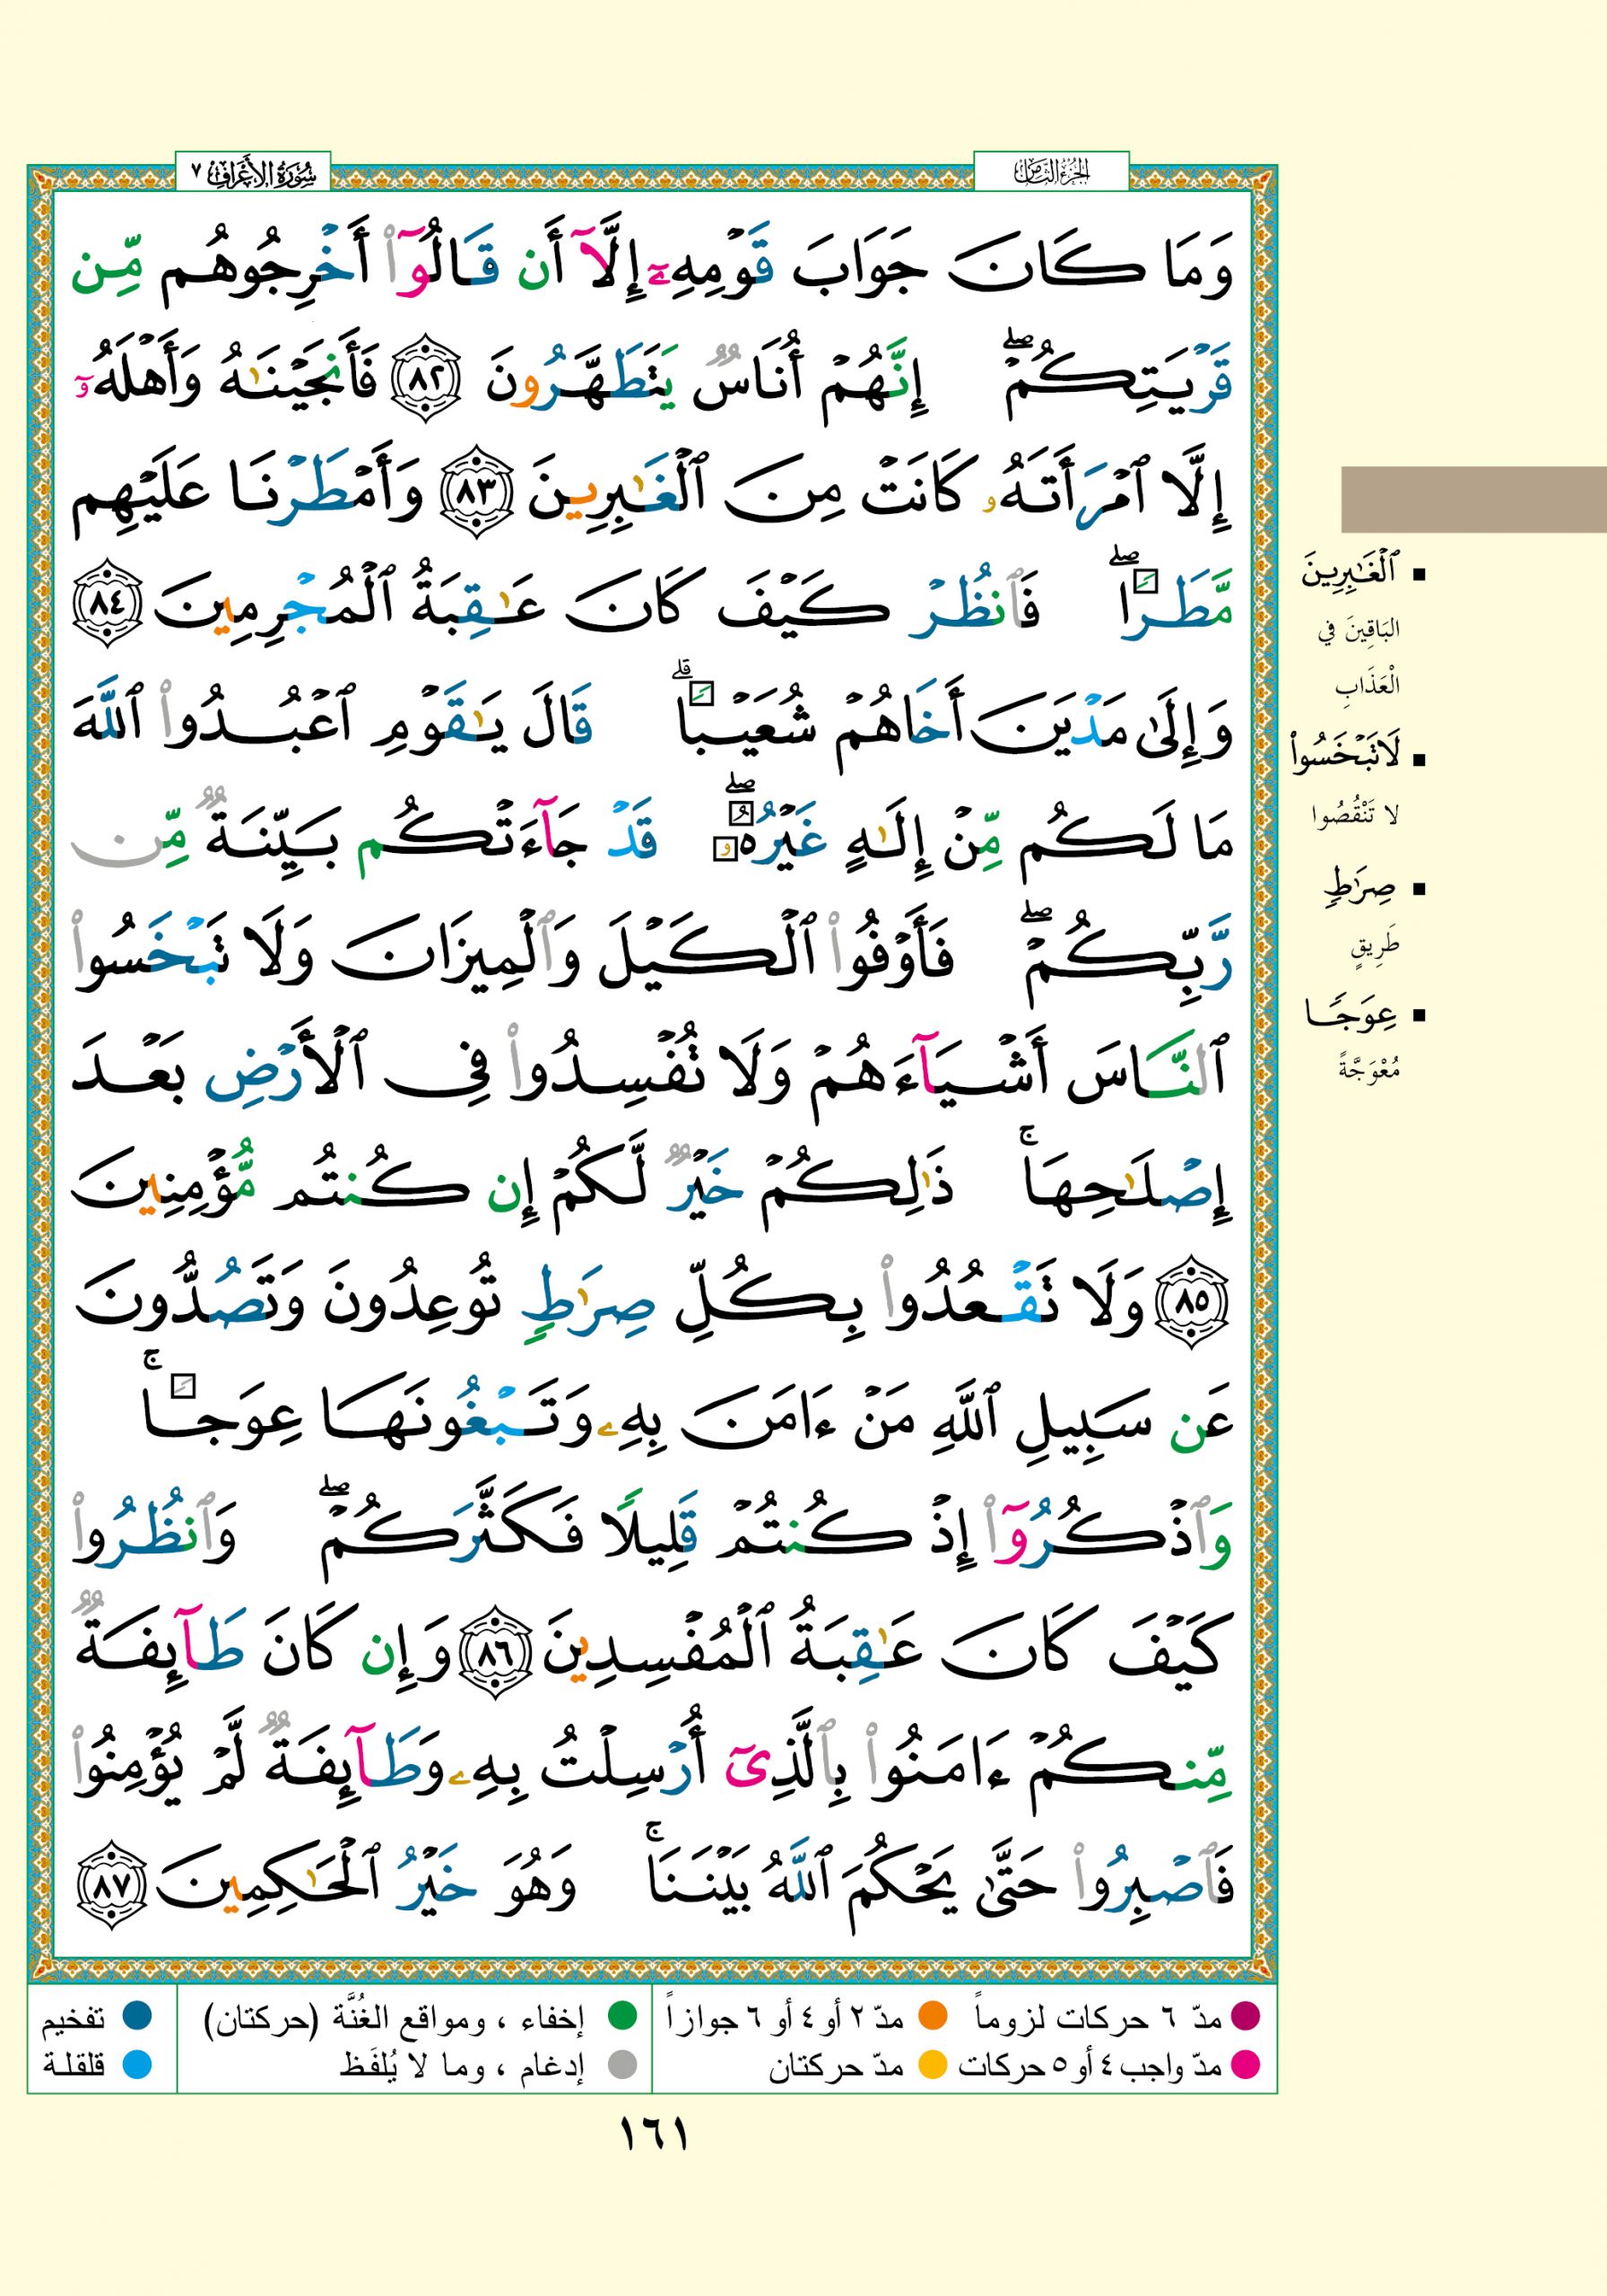 الجزء الثامن
سورة الأعراف ٧
وَمَا كَانَ جَوَابَ قَوْمِهِۦٓ إِلَّآ أَن قَالُوٓا۟ أَخْرِجُوهُم مِّن
قَرْيَتِكُمْ ۖ إِنَّهُمْ أُنَاسٌ يَتَطَهَّرُونَ ٨٢ فَأَنجَيْنَـٰهُ وَأَهْلَهُۥٓ
إِلَّا ٱمْرَأَتَهُۥ كَانَتْ مِنَ ٱلْغَـٰبِرِينَ ٨٣ وَأَمْطَرْنَا عَلَيْهِم
مَّطَرًا ۖ فَٱنظُرْ كَيْفَ كَانَ عَـٰقِبَةُ ٱلْمُجْرِمِينَ ٨٤
وَإِلَىٰ مَدْيَنَ أَخَاهُمْ شُعَيْبًا ۗ قَالَ يَـٰقَوْمِ ٱعْبُدُوا۟ ٱللَّهَ
مَا لَكُم مِّنْ إِلَـٰهٍ غَيْرُهُۥ ۖ قَدْ جَآءَتْكُم بَيِّنَةٌ مِّن
رَّبِّكُمْ ۖ فَأَوْفُوا۟ ٱلْكَيْلَ وَٱلْمِيزَانَ وَلَا تَبْخَسُوا۟
ٱلنَّاسَ أَشْيَآءَهُمْ وَلَا تُفْسِدُوا۟ فِى ٱلْأَرْضِ بَعْدَ
إِصْلَـٰحِهَا ۚ ذَٰلِكُمْ خَيْرٌ لَّكُمْ إِن كُنتُم مُّؤْمِنِينَ
٨٥ وَلَا تَقْعُدُوا۟ بِكُلِّ صِرَٰطٍ تُوعِدُونَ وَتَصُدُّونَ
عَن سَبِيلِ ٱللَّهِ مَنْ ءَامَنَ بِهِۦ وَتَبْغُونَهَا عِوَجًا ۚ
وَٱذْكُرُوٓا۟ إِذْ كُنتُمْ قَلِيلًا فَكَثَّرَكُمْ ۖ وَٱنظُرُوا۟
كَيْفَ كَانَ عَـٰقِبَةُ ٱلْمُفْسِدِينَ ٨٦ وَإِن كَانَ طَآئِفَةٌ
مِّنكُمْ ءَامَنُوا۟ بِٱلَّذِىٓ أُرْسِلْتُ بِهِۦ وَطَآئِفَةٌ لَّمْ يُؤْمِنُوا۟
فَٱصْبِرُوا۟ حَتَّىٰ يَحْكُمَ ٱللَّهُ بَيْنَنَا ۚ وَهُوَ خَيْرُ ٱلْحَـٰكِمِينَ ٨٧
▪ ٱلْغَـٰبِرِينَ
البَاقِينَ في
الْعَذَابِ
▪ لَا تَبْخَسُوا۟
لا تَنْقُصُوا
▪ صِرَٰطٍ
طَرِيقٍ
▪ عِوَجًا
مُعْوَجَّةً
مدّ ٦ حركات لزوماً مدّ ٢ أو ٤ أو ٦ جوازاً إخفاء ، ومواقع الغُنَّة (حركتان) تفخيم
مدّ واجب ٤ أو ٥ حركات مدّ حركتان إدغام ، وما لا يُلفَظ قلقلة
١٦١